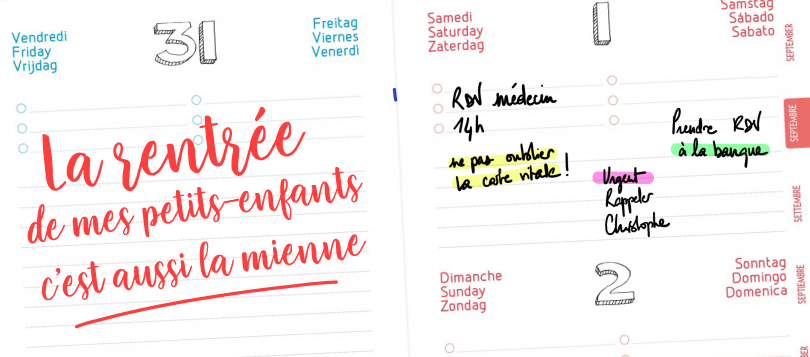 Vendredi
Friday
Vrijdag
31
Freitag
Viernes
Venerdì
La rentrée
de mes petits-enfants
c'est aussi la mienne
Samedi
Saturday
Zaterdag
1
Samstag
Sábado
Sabato
RDV médecin
14h
ne pas oublier
la carte vitale !
Urgent
Rappeler
Christophe
Prendre RDV
à la banque
Dimanche
Sunday
Zondag
2
Sonntag
Domingo
Domenica
SEPTEMBER
SEPTEMBRE
SETTEMBRE
SEPTIEMBRE